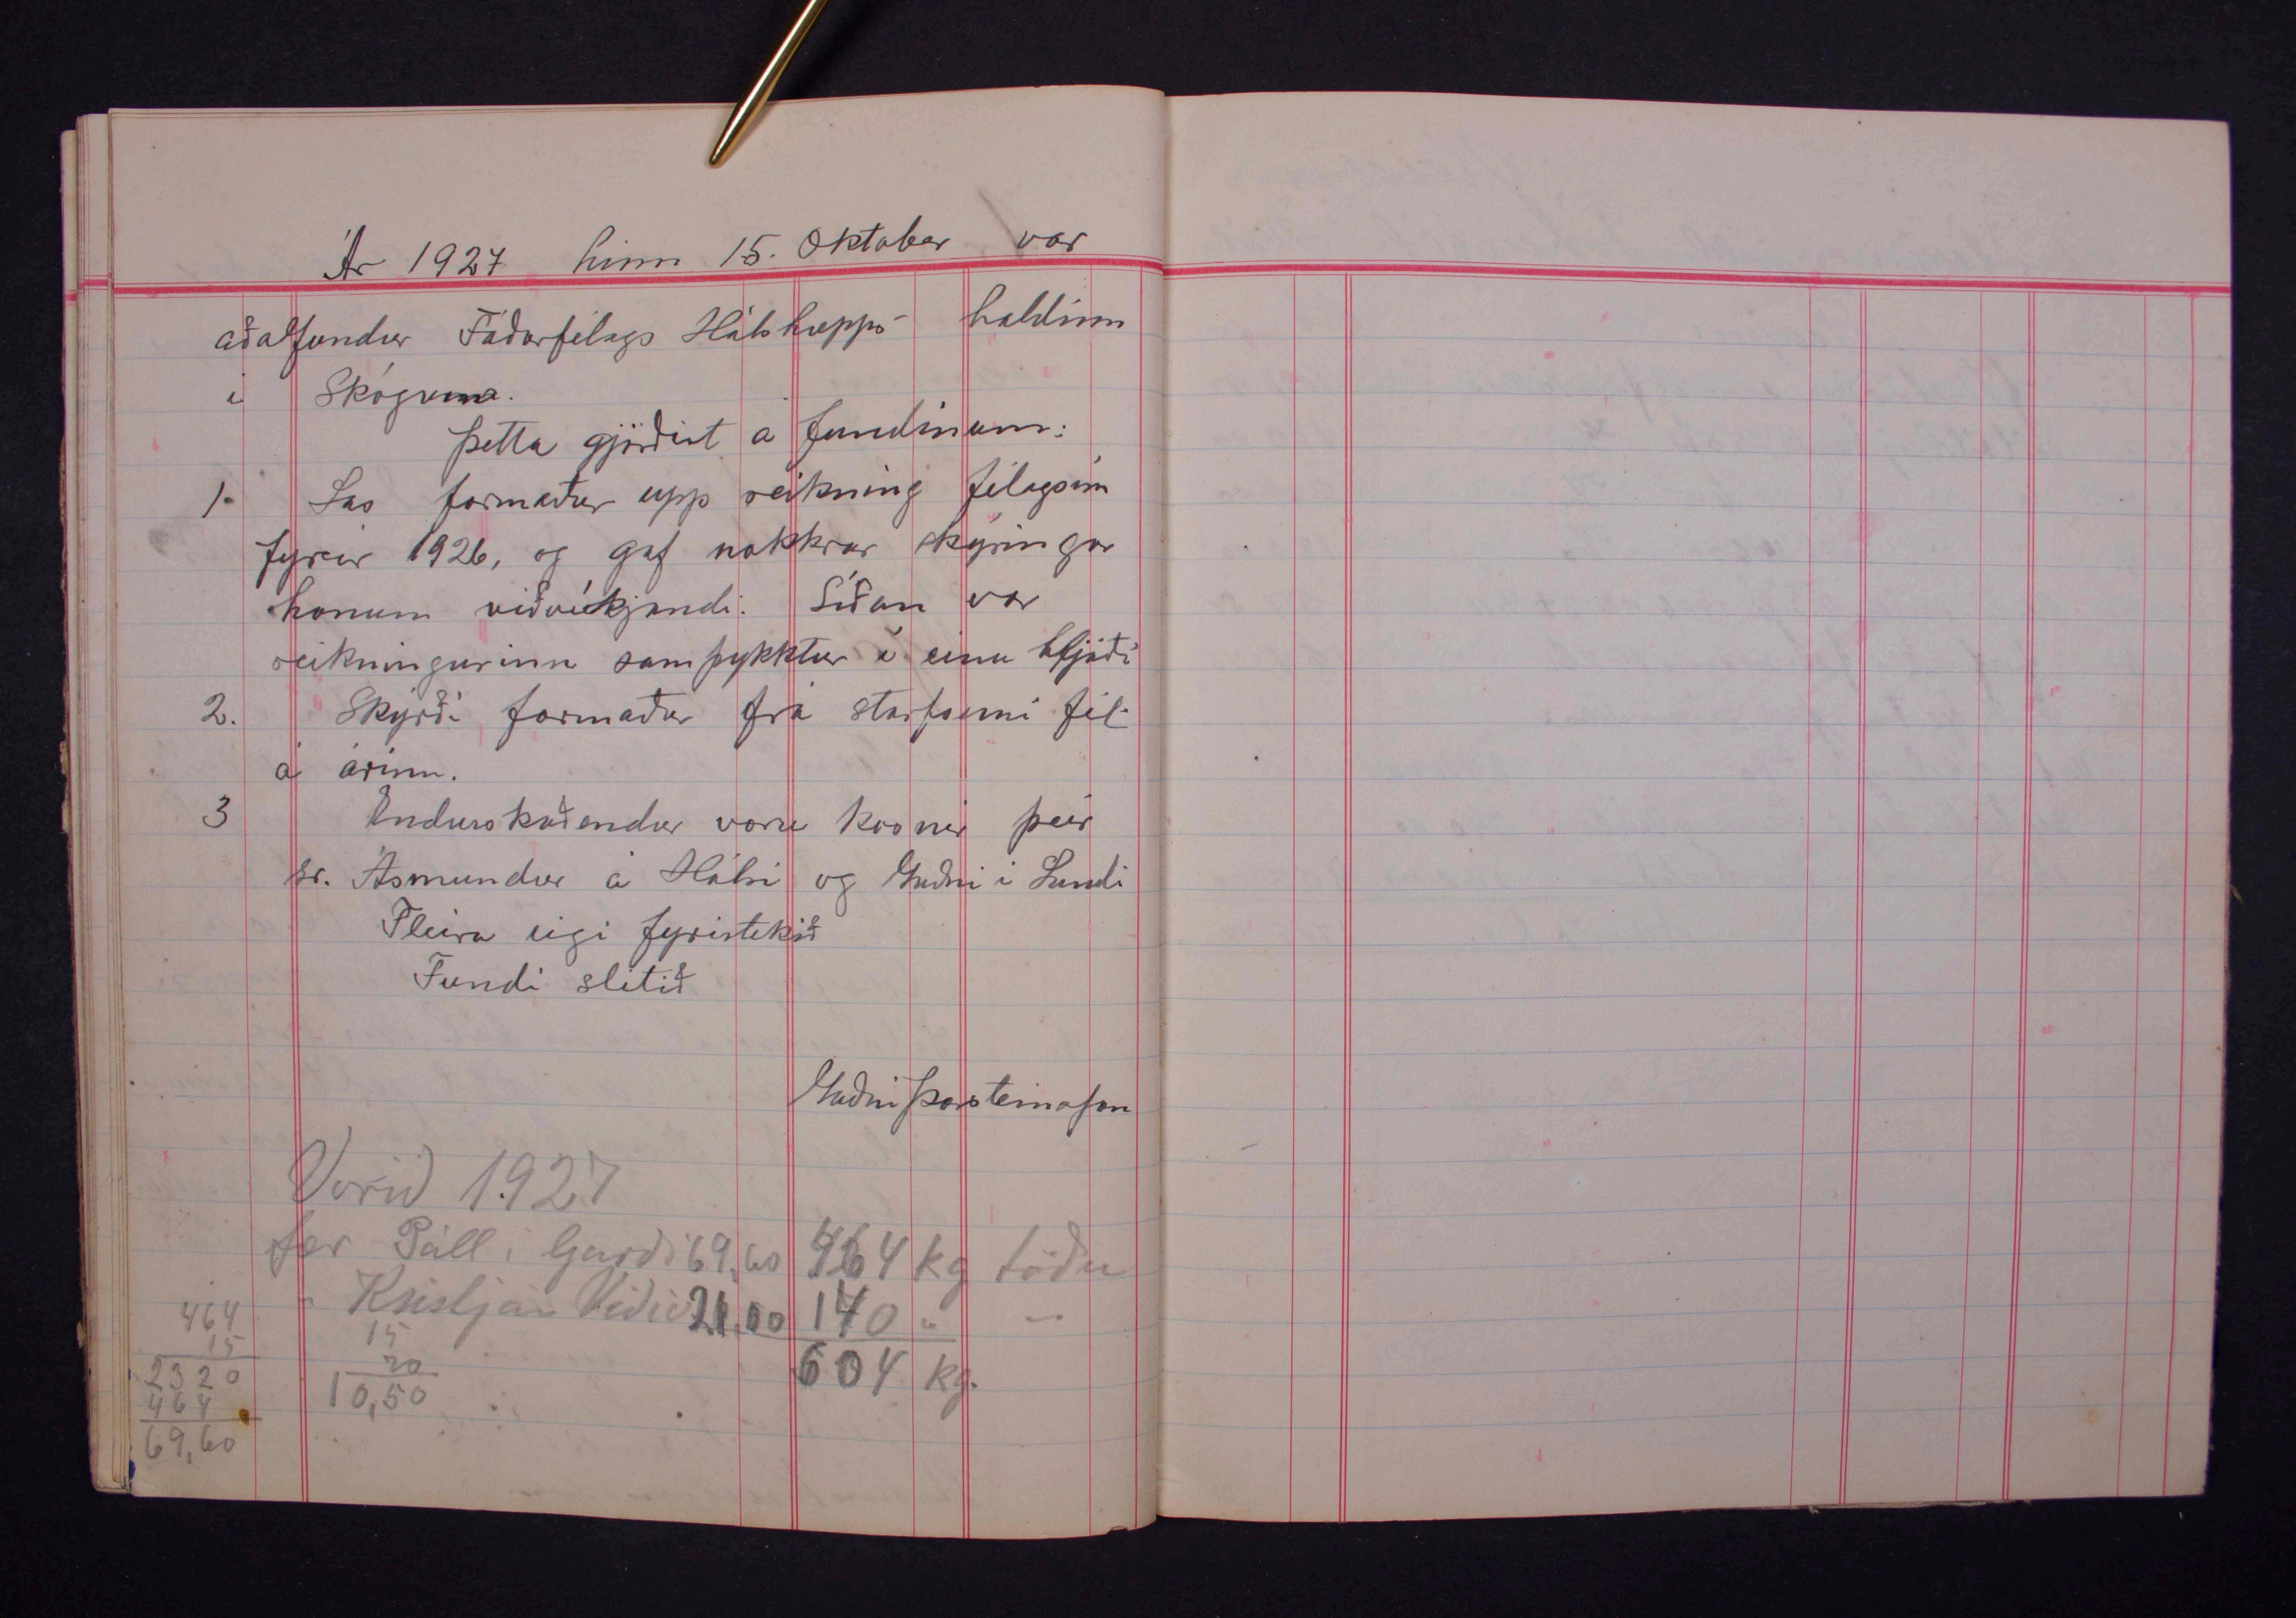 Ár 1927 hinn 15. Oktober var
aðalfundur Fóðurfélags Hálshrepps haldinn
í Skógum.
Þetta gjörðist á fundinum:
1. Las formaður upp reikning félagsins
fyrir 1926, og gaf nokkrar skýringar
honum viðvíkjandi. Síðan var
reikningurinn samþykktur í einu hljóði
2. Skýrði formaður frá starfsemi fél.
á árinu.
3 Endurskoðendur voru kosnir þeir
sr. Ásmundur á Hálsi og Guðni í Lundi
Fleira eigi fyrirtekið
Fundi slitið
Guðni Þorsteinsson
Vorið 1927
fær Páll í Garði 69,60 464 kg töðu
" Kristján 21,00 140 " —
604 kg.
464
15
2320
464
69,60
15
70
10,50